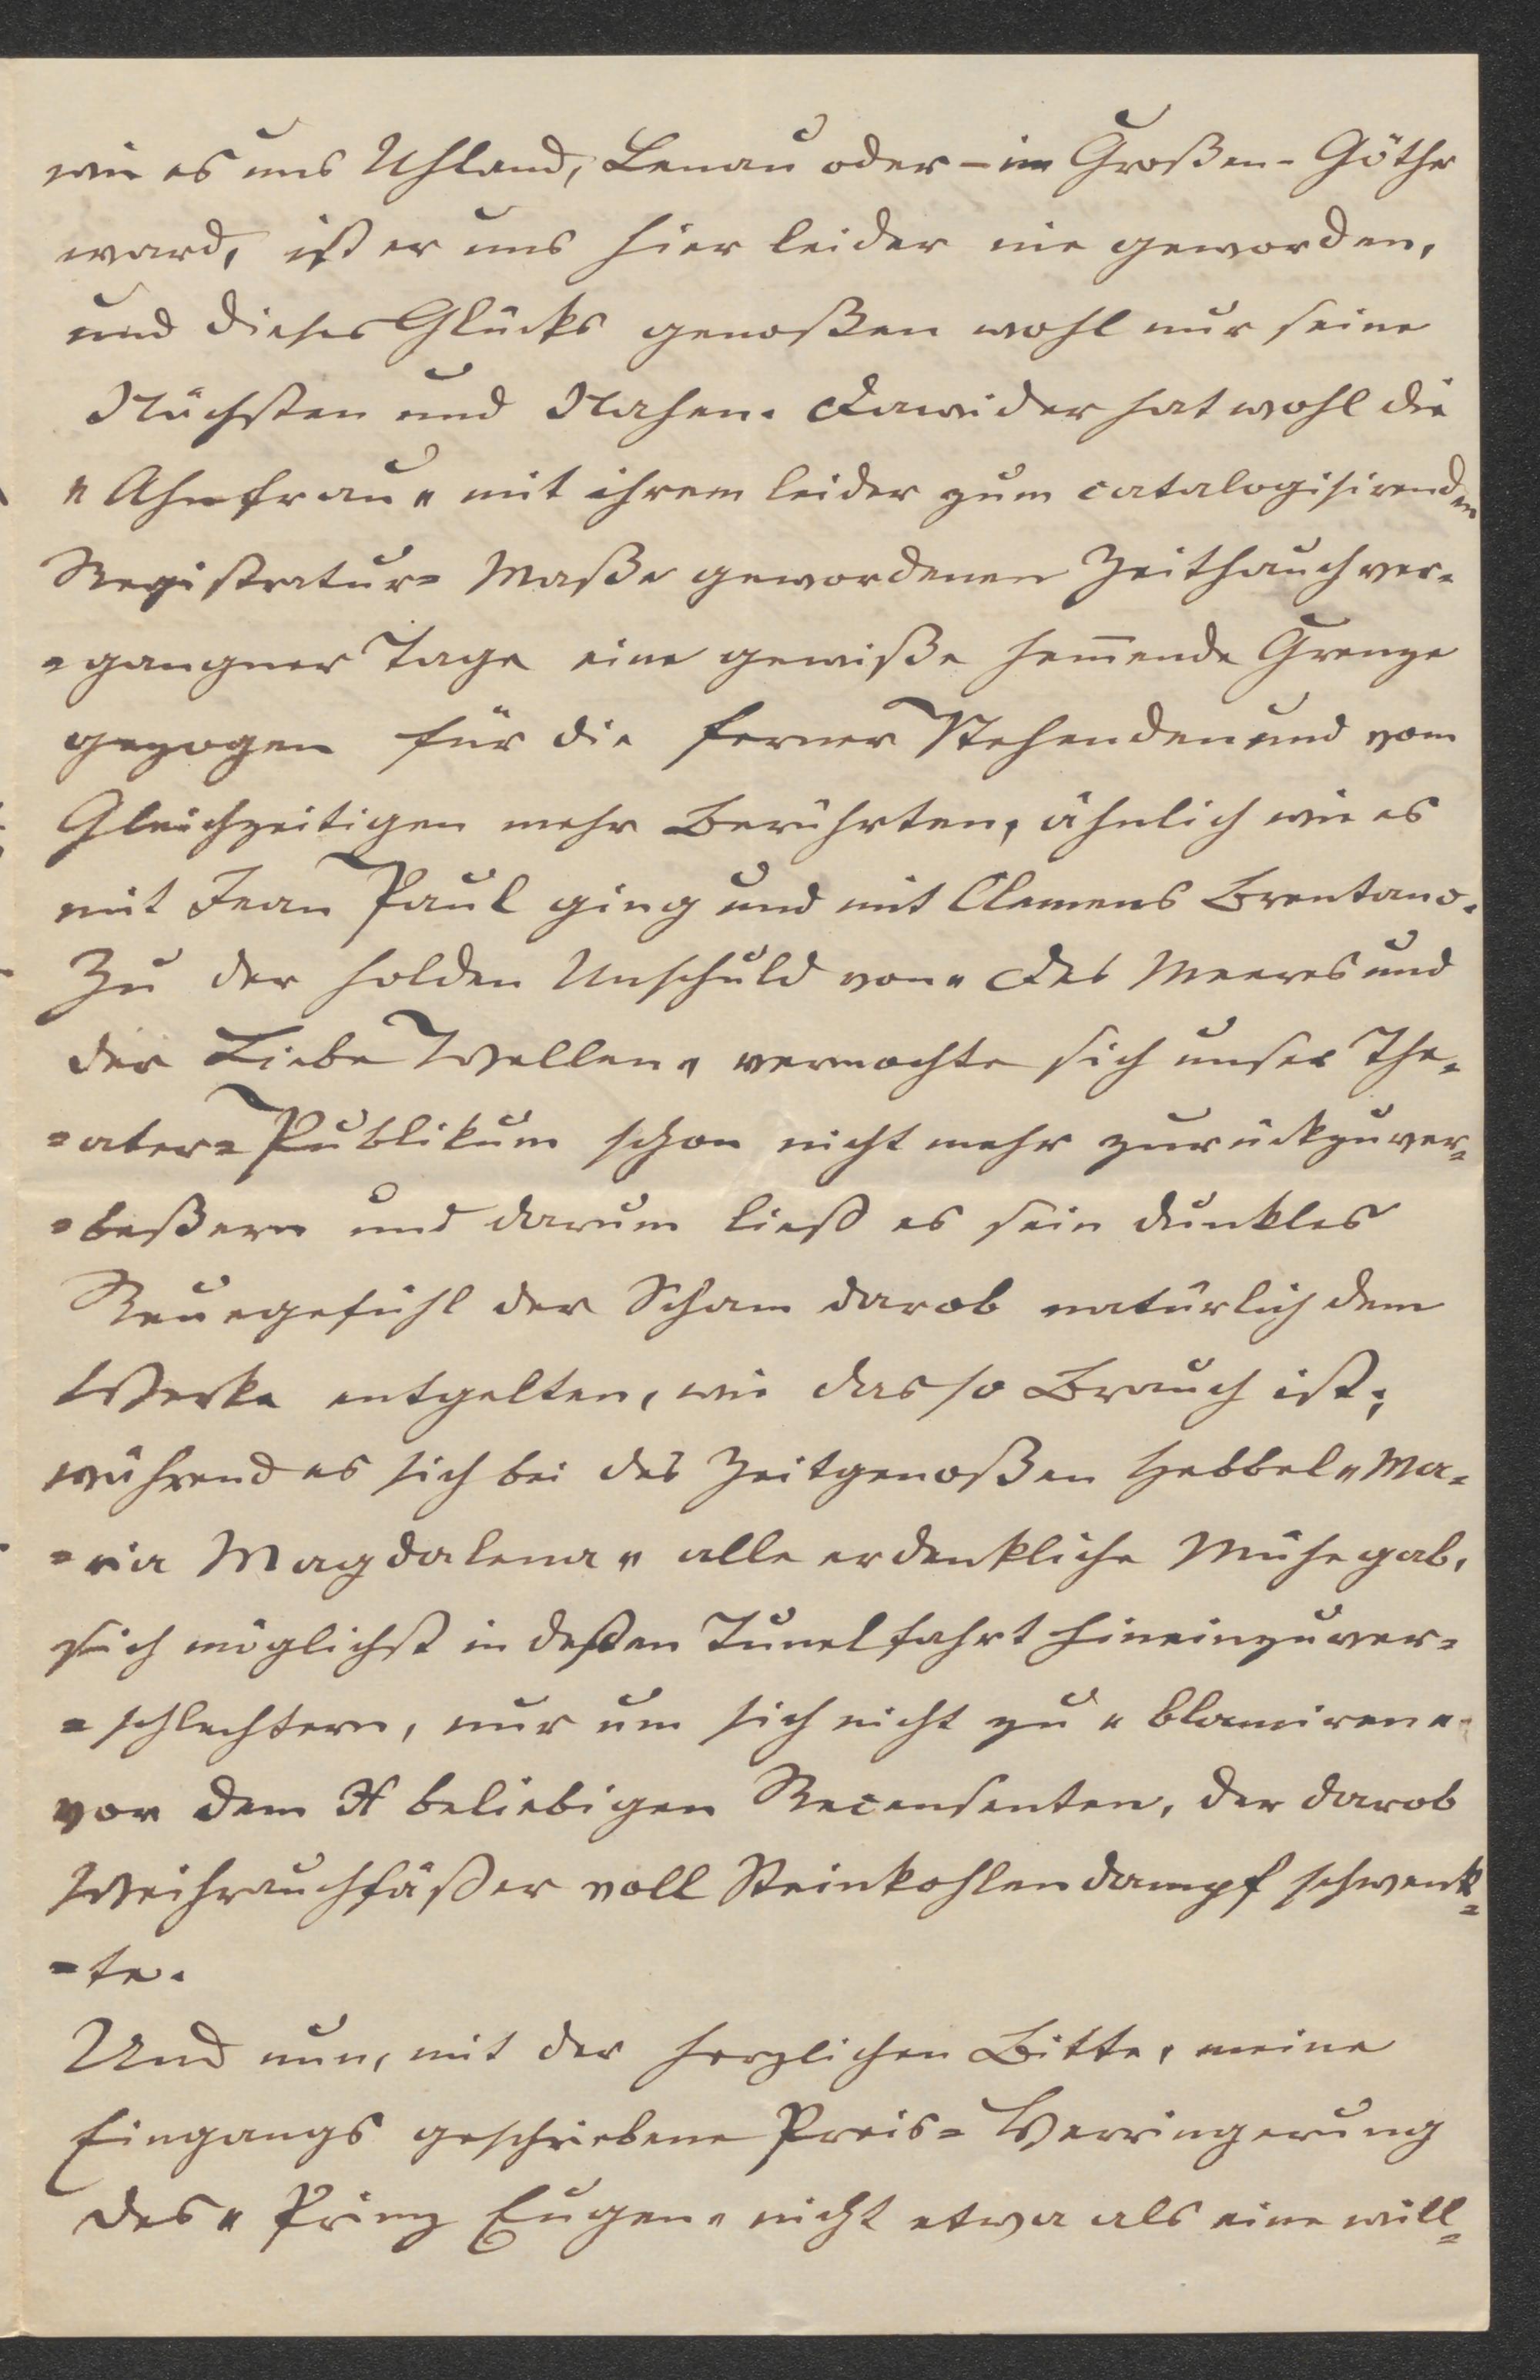 wie es uns Uhland, Lenau oder – im Großen – Göthe
ward, ist er uns hier leider nie geworden,
und dieses Glücks genoßen wohl nur seine
Nächsten und Nahen. Dawider hat wohl die
"Ahnfrau" mit ihrem leider zum catalogisirenden
Registratur= Maße gewordenen Zeithauch ver=
=gangner Tage eine gewiße hem̄ende Grenze
gezogen für die ferner Stehenden und vom
Gleichzeitigen mehr Berührten, ähnlich wie es
mit Jean Paul ging und mit Clemens Brentano.
Zu der holden Unschuld von "Des Meeres und
der Liebe Wellen" vermochte sich unser The=
=ater= Publikum schon nicht mehr zurückzuver=
=beßern und darum ließ es sein dunkles
Reuegefühl der Scham darob natürlich dem
Werke entgelten, wie das so Brauch ist;
während es sich bei des Zeitgenoßen Hebbel "Ma=
=ria Magdalena" alle erdenkliche Mühe gab,
sich möglichst in deßen Tunelfahrt hineinzuver=
=schlechtern, nur um sich nicht zu "blamiren"
vor dem X beliebigen Recensenten, der darob
Weihrauchfäßer voll Steinkohlendampf schwenk=
=te.
Und nun, mit der herzlichen Bitte, meine
Eingangs geschriebene Preis= Verringerung
des "Prinz Eugen" nicht etwa als eine will=